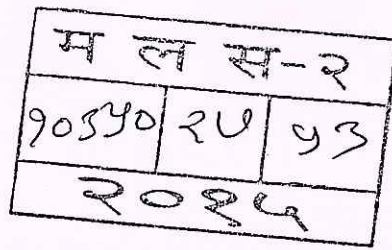 म ल स-२
१०३५० २७ ५३
२०१५